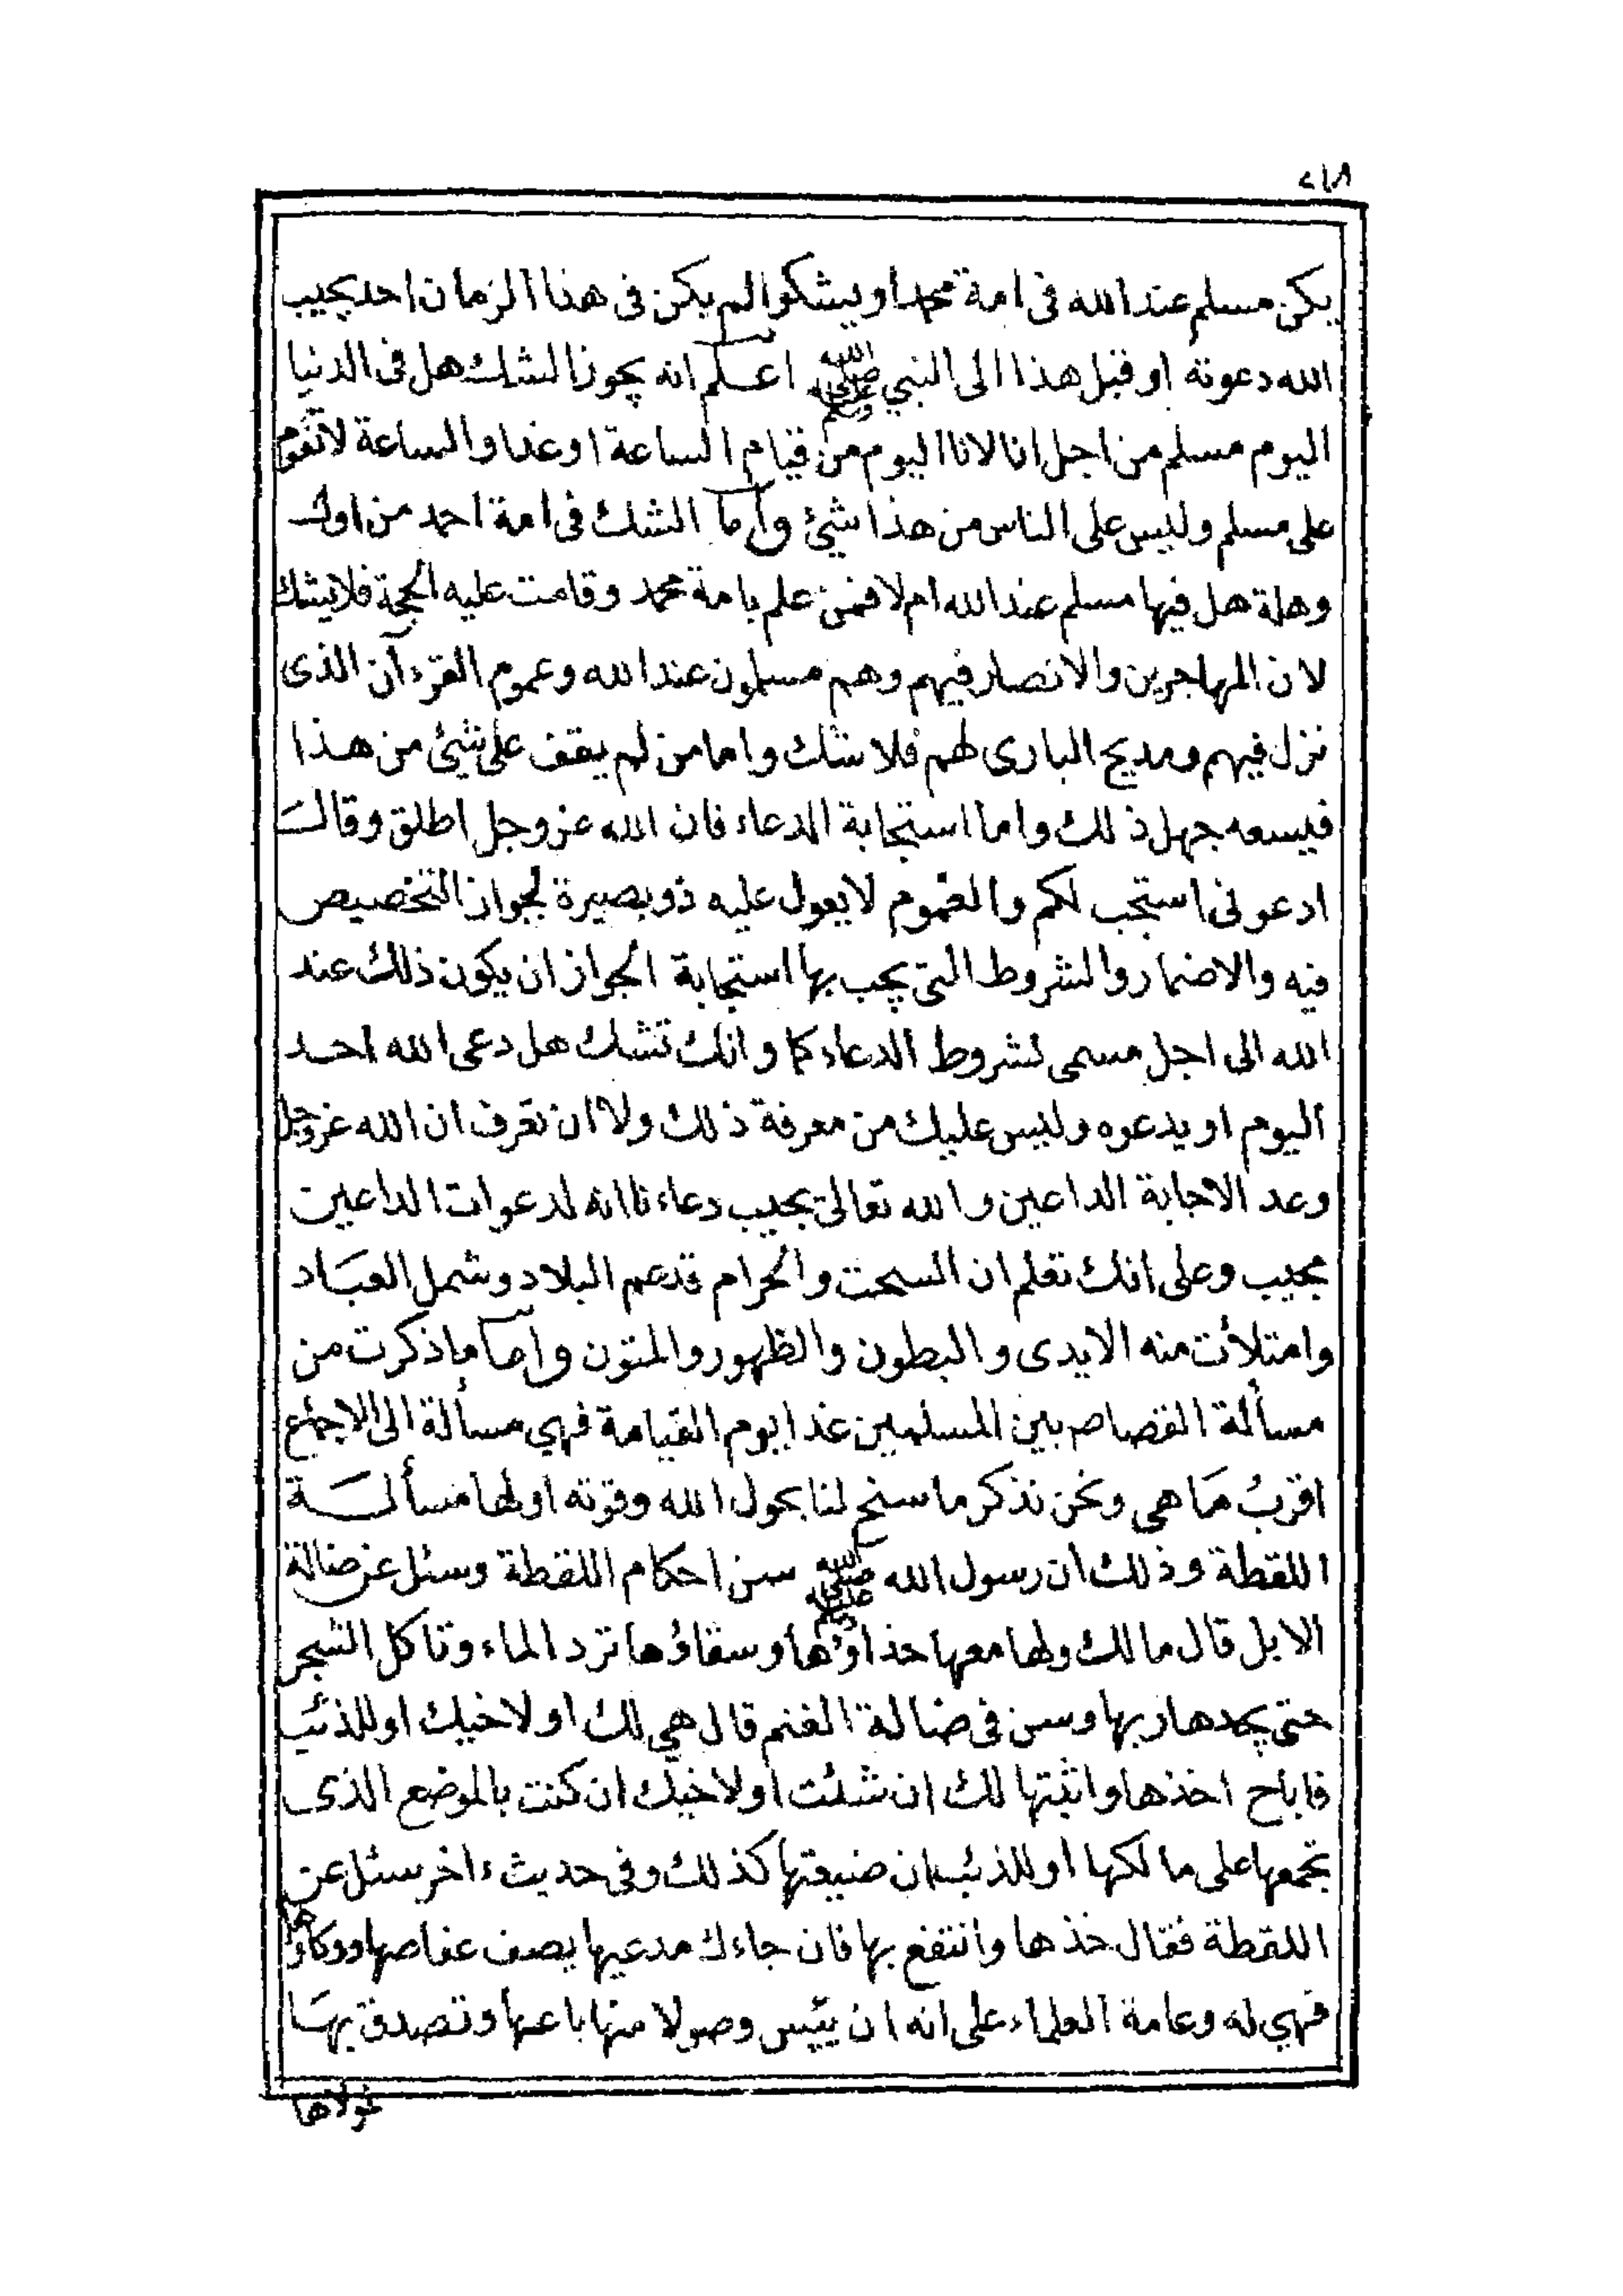 ٢١٨
يكن مسلم عند الله فى امة محمد او يشكوا لم يكن فى هذا الزمان احد يجيب
الله دعوته او قبل هذا الى النبي صلى الله عليه وسلم اعلم انه يجوز الشك هل فى الدنيا
اليوم مسلم من اجل انا لانا اليوم من قيام الساعة او غدا والساعة لا تقوم
على مسلم وليس على الناس من هذا شيئ واما الشك فى امة احمد من اول
وهلة هل فيها مسلم عند الله ام لا فمن علم بامة محمد وقامت عليه الحجة فلا يشك
لان المهاجرين والانصار فيهم وهم مسلمون عند الله وعموم القرءآن الذى
نزل فيهم ومديح البارى لهم فلا شك واما من لم يقف على شيئ من هذا
فيسعه جهل ذلك واما استجابة الدعاء فان الله عز وجل اطلق وقال
ادعونى استجب لكم والعموم لا يعول عليه ذو بصيرة لجواز التخصيص
فيه والاضمار والشروط التى يجب بها استجابة الجواز ان يكون ذلك عند
الله الى اجل مسمى لشروط الدعاء كما وانك تشك هل دعى الله احد
اليوم او يدعوه وليس عليك من معرفة ذلك ولا ان تعرف ان الله عز وجل
وعد الاجابة الداعين والله تعالى يجيب دعاءنا انه لدعوات الداعين
مجيب وعلى انك تعلم ان السحت والحرام قد عم البلاد وشمل العباد
وامتلأت منه الايدى والبطون والظهور والمتون واما ما ذكرت من
مسألة القصاص بين المسلمين غدا يوم القيامة فهي مسألة الى الاجماع
اقرب مما هى ونحن نذكر ما سنح لنا بحول الله وقوته اولها مسألة
اللقطة وذلك ان رسول الله صلى الله عليه وسلم سن احكام اللقطة وسئل عن ضالة
الابل قال مالك ولها معها حذاؤها وسقاؤها ترد الماء وتاكل الشجر
حتى يجدها ربها وسن فى ضالة الغنم قال هي لك او لاخيك او للذئب
فاباح اخذها واثبتها لك ان شئت او لاخيك ان كنت بالموضع الذى
تجمعها على مالكها او للذئب ان ضيعتها كذلك وفى حديث ءاخر سئل عن
اللقطة فقال خذها وانتفع بها فان جاءك مدعيها يصف عفاصها ووكاؤها
فهي له وعامة العلماء على انه ان يئيس وصولا منها باعها وتصدق بها